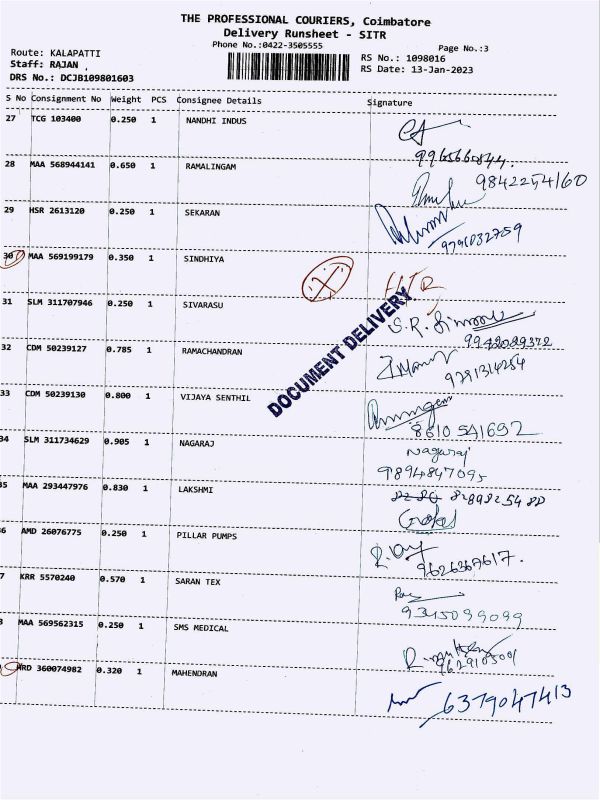 THE PROFESSIONAL COURIERS, Coimbatore
Delivery Runsheet - SITR
Phone No.:0422-3505555
Page No.:3
Route: KALAPATTI
RS No.: 1098016
Staff: RAJAN .
RS Date: 13-Jan-2023
DRS No.: DCJB109801603
S No Consignment No Weight PCS Consignee Details Signature
27 TCG 103400 0.250 1 NANDHI INDUS
28 MAA 568944141 0.650 1 RAMALINGAM
9842254160
29 HSR 2613120 0.250 1 SEKARAN
9791032759
30 MAA 569199179 0.350 1 SINDHIYA
31 SLM 311707946 0.250 1 SIVARASU
DOCUMENT DELIVERY
32 CDM 50239127 0.785 1 RAMACHANDRAN
9791314254
33 CDM 50239130 0.800 1 VIJAYA SENTHIL
8610541692
34 SLM 311734629 0.905 1 NAGARAJ
Nagaraj
9894847095
35 MAA 293447976 0.830 1 LAKSHMI
36 AMD 26076775 0.250 1 PILLAR PUMPS
9626367617.
7 KRR 5570240 0.570 1 SARAN TEX
9345099099
MAA 569562315 0.250 1 SMS MEDICAL
9629105001
MRD 360074982 0.320 1 MAHENDRAN
6379047413